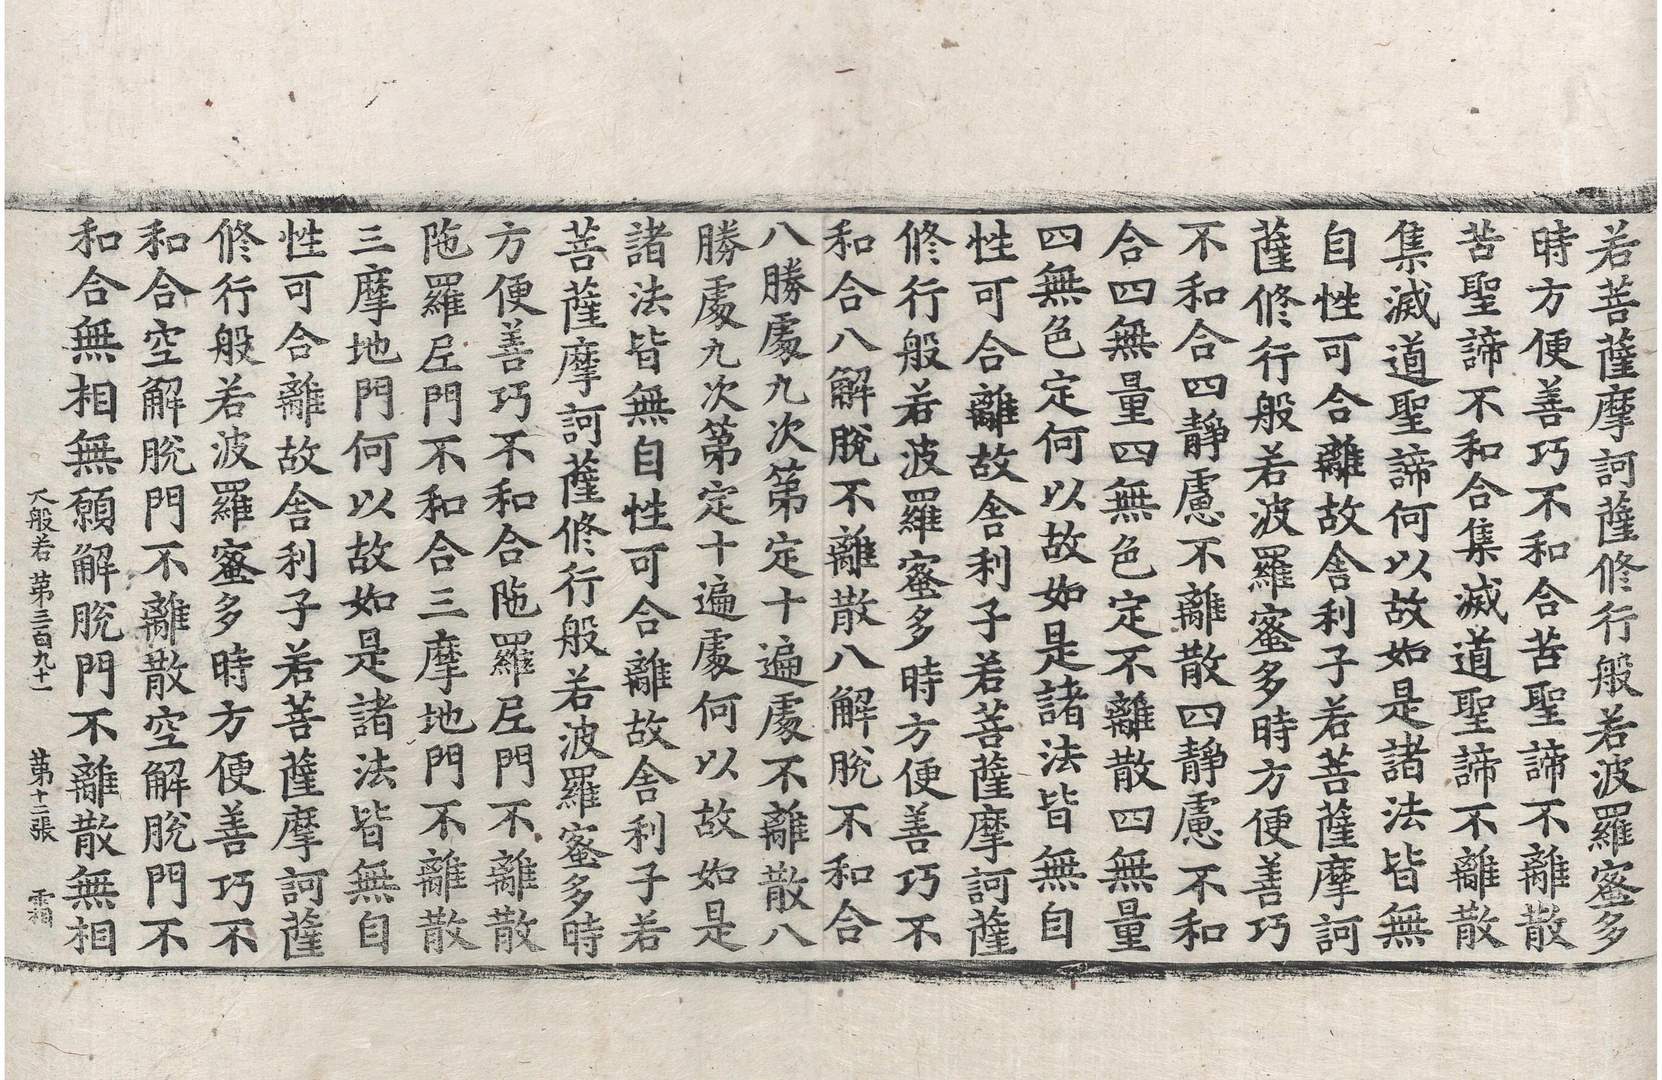 若菩薩摩訶薩修行般若波羅蜜多
時方便善巧不和合苦聖諦不離散
苦聖諦不和合集滅道聖諦不離散
集滅道聖諦何以故如是諸法皆無
自性可合離故舍利子若菩薩摩訶
薩修行般若波羅蜜多時方便善巧
不和合四靜慮不離散四靜慮不和
合四無量四無色定不離散四無量
四無色定何以故如是諸法皆無自
性可合離故舍利子若菩薩摩訶薩
修行般若波羅蜜多時方便善巧不
和合八解脫不離散八解脫不和合
八勝處九次第定十遍處不離散八
勝處九次第定十遍處何以故如是
諸法皆無自性可合離故舍利子若
菩薩摩訶薩修行般若波羅蜜多時
方便善巧不和合陁羅尼門不離散
陁羅尼門不和合三摩地門不離散
三摩地門何以故如是諸法皆無自
性可合離故舍利子若菩薩摩訶薩
修行般若波羅蜜多時方便善巧不
和合空解脫門不離散空解脫門不
和合無相無願解脫門不離散無相
大般若第三百九十一 第十二張 霜